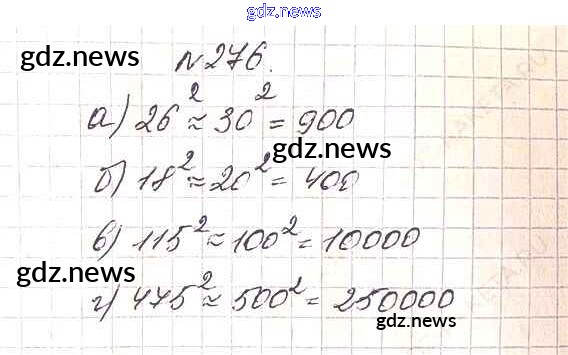 gdz.news
gdz.news
№276.
а) 26² ≈ 30² = 900
gdz.news
б) 18² ≈ 20² = 400
в) 115² ≈ 100² = 10000
gdz.news
г) 475² ≈ 500² = 250000
gdz.news